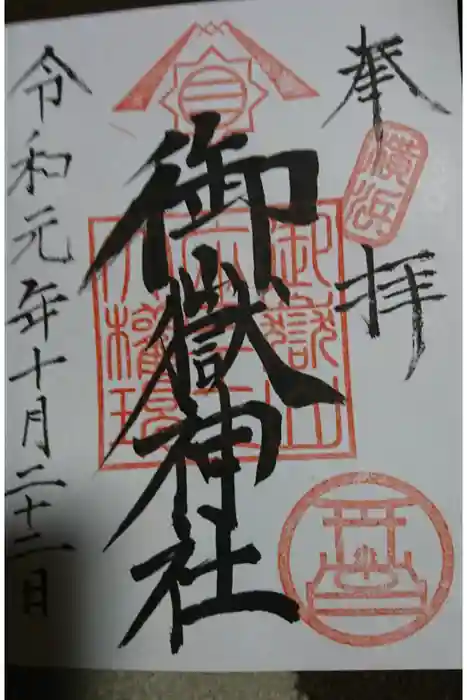 奉拝
横浜
御嶽神社
令和元年十月二十二日